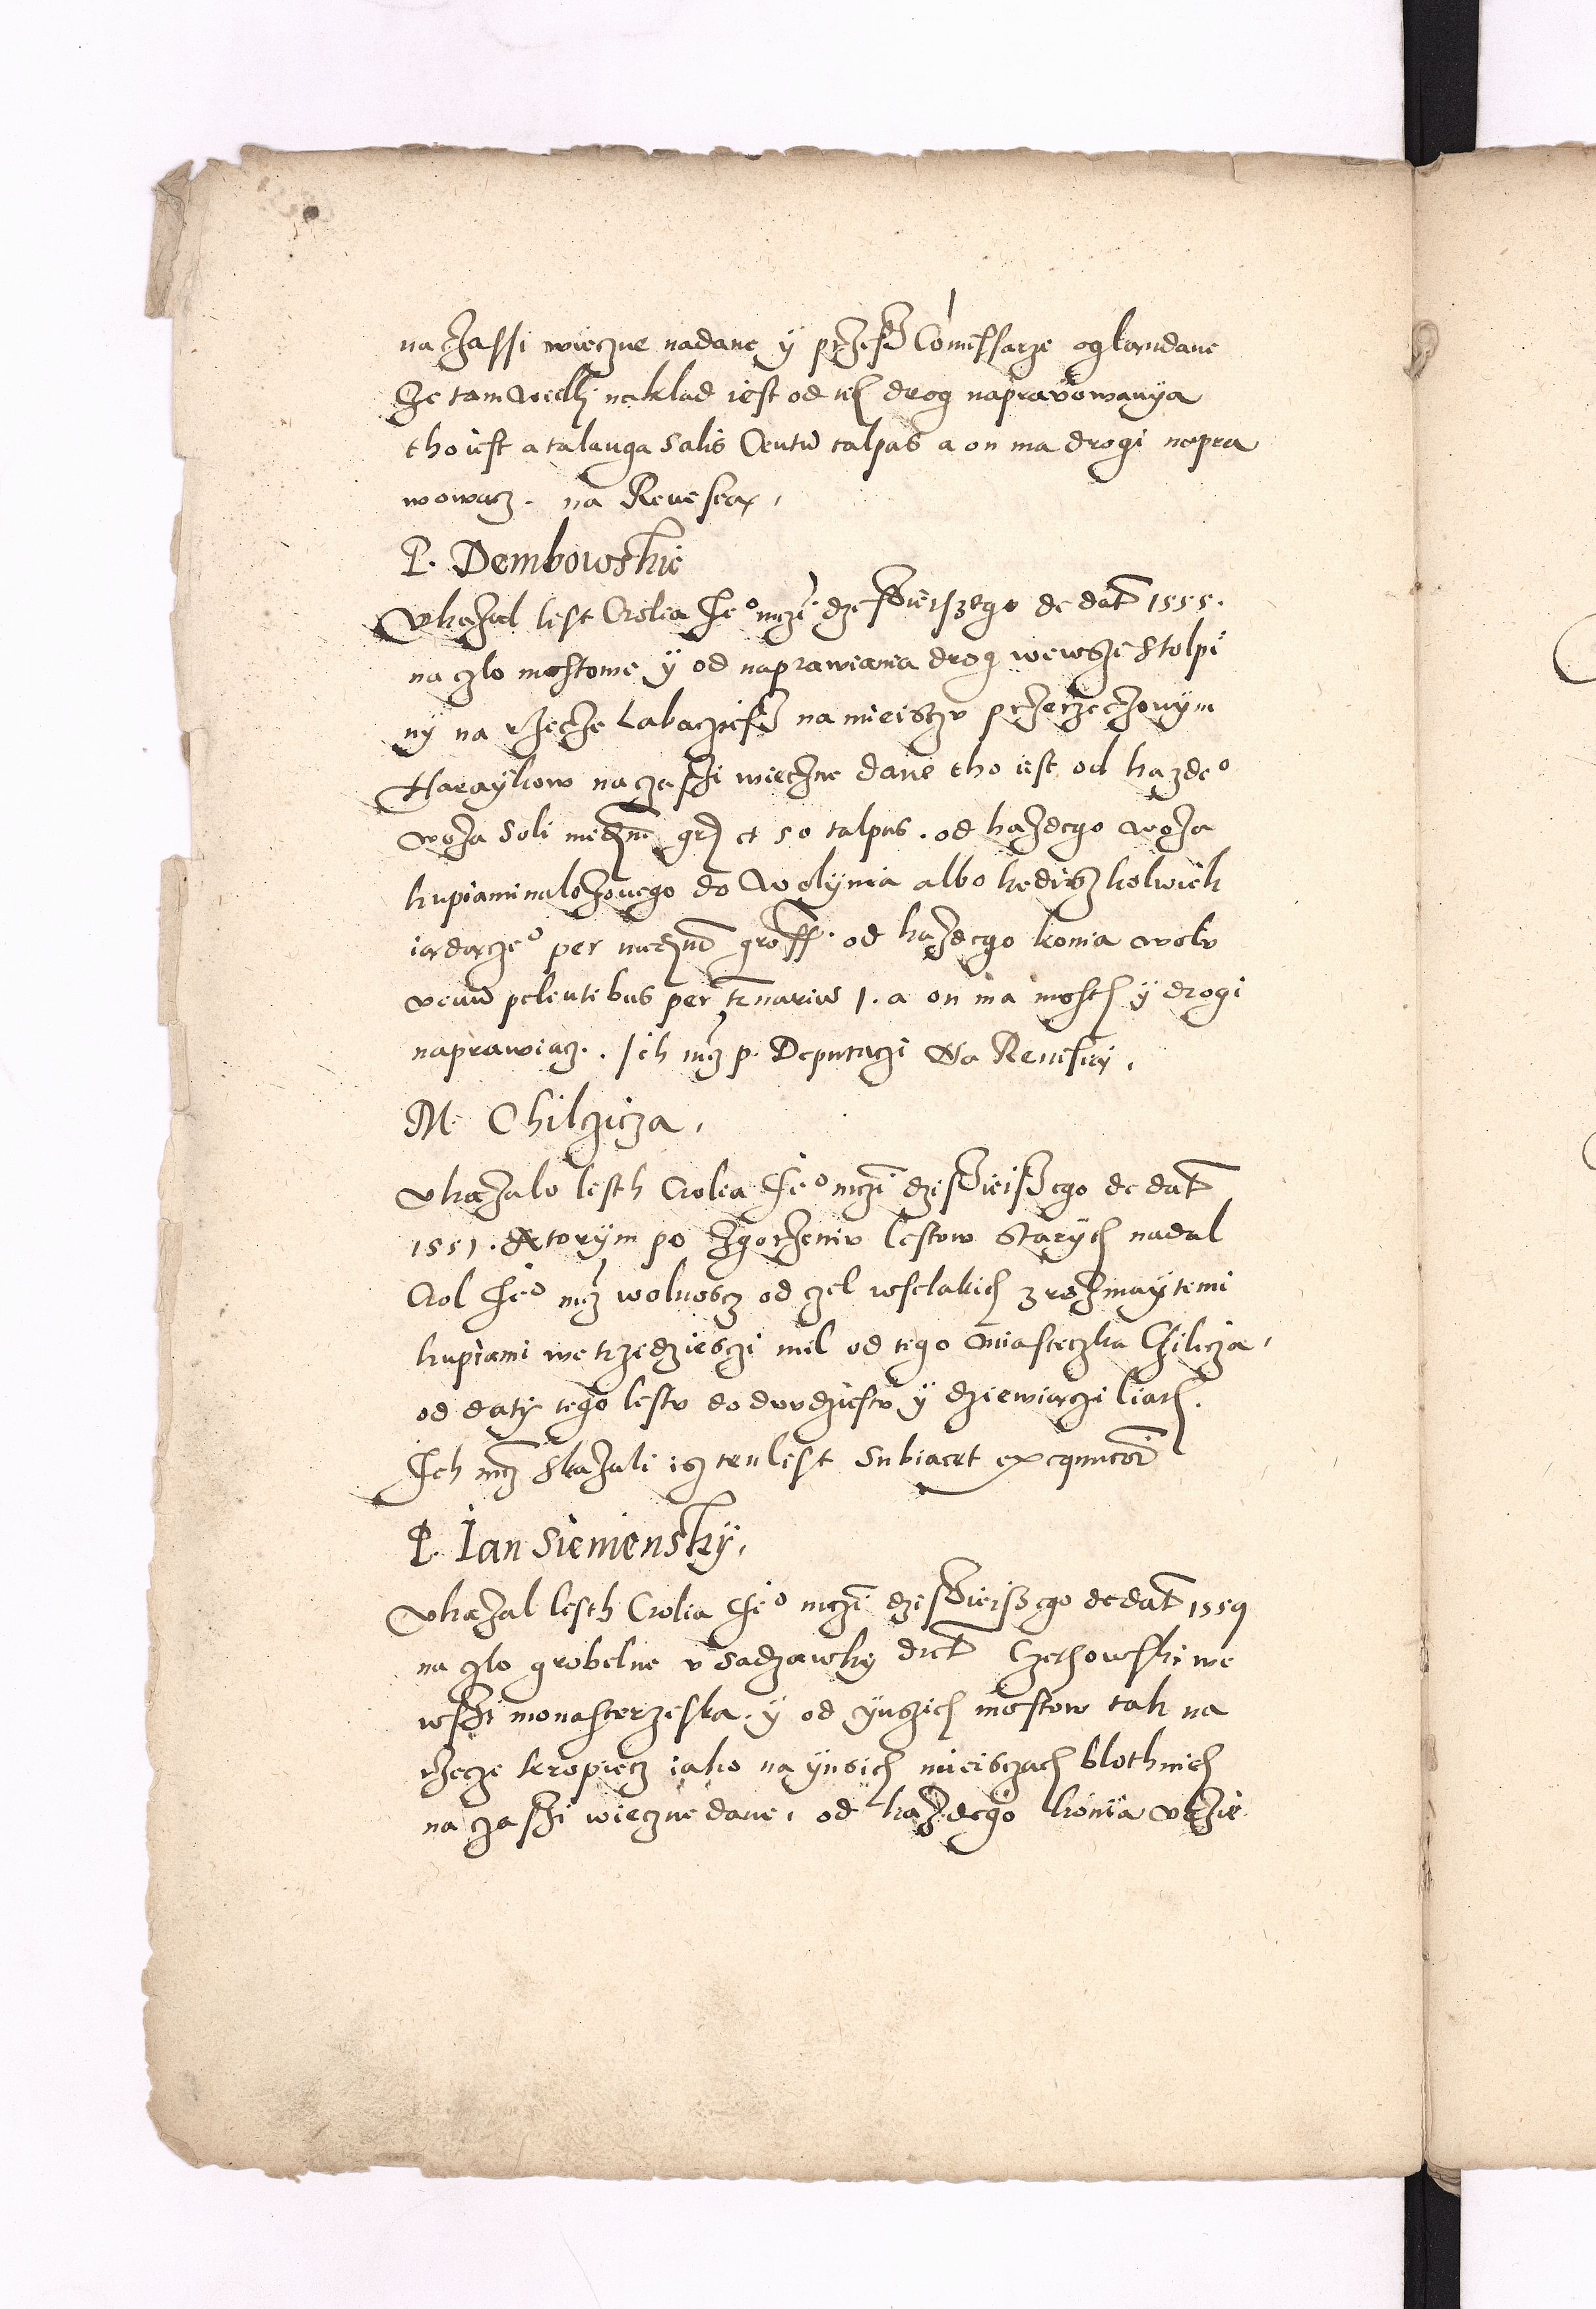 na czassi wieczne nadane y przesz Comissarze oglandane
ze tam wielki naklad iest od tich drog naprawowanya
tho iest a talauga salis Centu talpas a on ma drogi napra
wowacz. na Reuesia.
P. Dembowskie
vkazal lest Crolia Jeo mczi dzeszieiszego de dat 1555.
na czlo mostowe y od naprawiania drog wewsze Stolpi
ny na rzecze Labaczisz na mieisczv przerzeczonym
Haraykow na czaszi wieczne dane tho iest od kazdeo
woza Soli medium gros et 50 talpas. od kazdego woza
kupiami nalozonego do Wolynia albo kedisz kolwiek
iadaczeo per medium gross. od kazdego konia wolv
venum pelentibus per ternarium 1. a on ma mosth y drogi
naprawiacz. Ich mcz p. Deputaczi Na Reuisiey.
M. Chilczicza.
vkazalo lesth Crolia Jeo mczi dzeszieiszego de dat
1551. Ktorym po zgorzeniv lestow starych nadal
Crol Jeo mcz wolnoscz od czel wselakich z rozmaytemi
kupiami we trzedziesczi mil od tego miasteczka Chilicza.
od daty tego lestv do dwudziestv y dziewiaczi liath.
Jch mcz skazali isz ten lest subiacet executioni
P. Jan Sienienskÿ.
vkazal lesth Crolia Jeo mczi dzeszieiszego de dat 1559
na czlo grobelne v sadzawky dict Czechowski we
wszi monasterzeska. y od ynszich mostow tak na
rzecze kropiecz iako na ynsich mieisczach blothnich
na czaszi wieczne dane. od kazdego konia vkzie